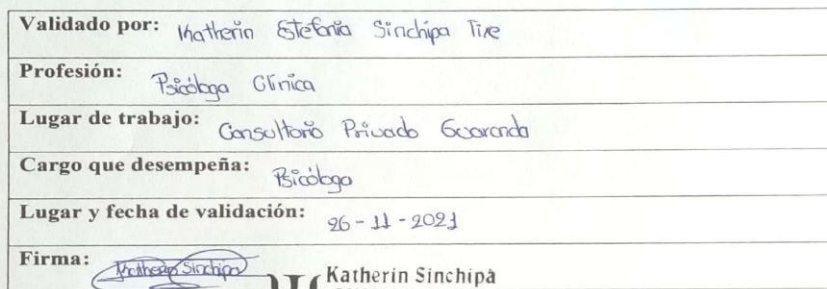 Validado por: Katherin Estefania Sinchipa Tixe
Profesión: Psicóloga Clínica
Lugar de trabajo: Consultorio Privado Guaranda
Cargo que desempeña: Psicóloga
Lugar y fecha de validación: 26 - 11 - 2021
Firma: Katherin Sinchipa
Katherin Sinchipà